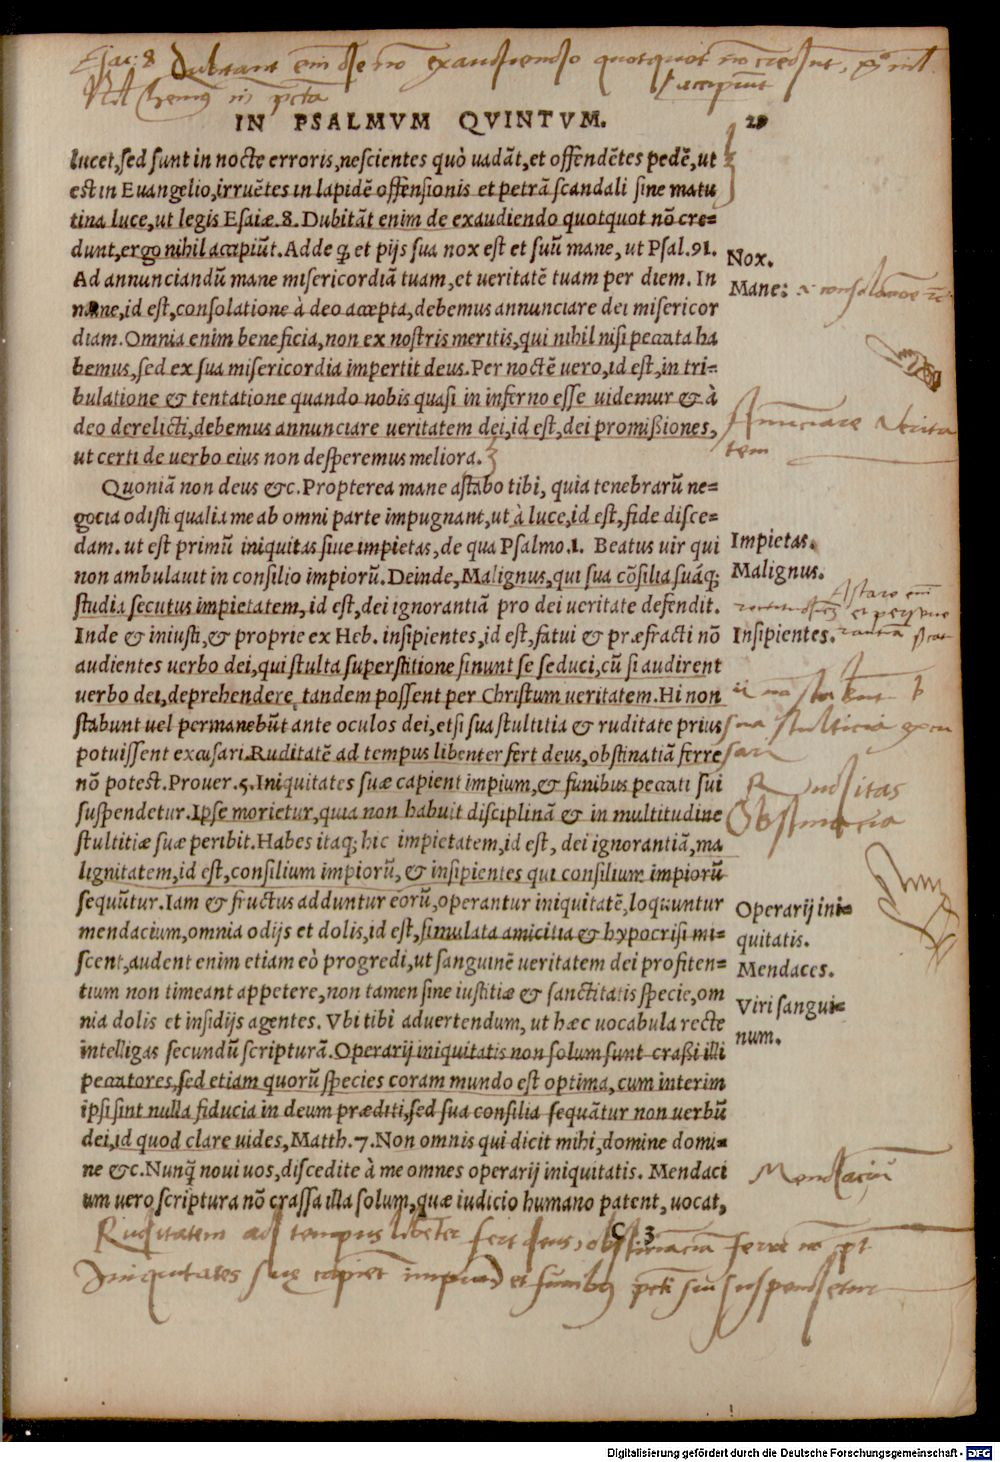 Esai: 8 Dubitant em̄ de no exaudiendo quotquot no credūt, ergo nil
Nil hemꝰ ni pctā accipiūt
IN PSALMVM QVINTVM. 29
lucet, sed sunt in nocte erroris, nescientes quò uadāt, et offendētes pedē, ut
est in Euangelio, irruētes in lapidē offensionis et petrā scandali sine matu
tina luce, ut legis Esaiæ. 8. Dubitāt enim de exaudiendo quotquot nō cre=
dunt, ergo nihil accipiūt. Adde ꝙ et pijs sua nox est et suū mane, ut Psal. 91.
Nox.
Ad annunciandū mane misericordiā tuam, et ueritatē tuam per diem. In
Mane:
mane, id est, consolatione à deo accepta, debemus annunciare dei misericor
diam. Omnia enim beneficia, non ex nostris meritis, qui nihil nisi peccata ha
bemus, sed ex sua misericordia impertit deus. Per noctē uero, id est, in tri=
bulatione & tentatione quando nobis quasi in inferno esse uidemur & à
deo derelicti, debemus annunciare ueritatem dei, id est, dei promißiones,
Annunciare Verita
tem
ut certi de uerbo eius non desperemus meliora.
Quoniā non deus &c. Propterea mane astabo tibi, quia tenebrarū ne=
gocia odisti qualia me ab omni parte impugnant, ut à luce, id est, fide disce=
dam. ut est primū iniquitas siue impietas, de qua Psalmo. 1. Beatus uir qui
Impietas.
non ambulauit in consilio impiorū. Deinde, Malignus, qui sua cōsilia suáq;
Malignus.
studia secutus impietatem, id est, dei ignorantiā pro dei ueritate defendit.
Astare em̄
Inde & iniusti, & proprie ex Heb. insipientes, id est, fatui & præfracti nō
Insipientes.
audientes uerbo dei, qui stulta superstitione sinunt se seduci, cū si audirent
uerbo dei, deprehendere tandem possent per Christum ueritatem. Hi non
stabunt uel permanebūt ante oculos dei, etsi sua stultitia & ruditate prius
sua stulticia excu
potuissent excusari. Ruditatē ad tempus libenter fert deus, obstinatiā ferre
sari
nō potest. Prouer. 5. Iniquitates suæ capient impium, & funibus peccati sui
Ruditas
suspendetur. Ipse morietur, quia non habuit disciplinā & in multitudine
Obstinacia
stultitiæ suæ peribit. Habes itaq; hic impietatem, id est, dei ignorantiā, ma
lignitatem, id est, consilium impiorū, & insipientes qui consilium impiorū
sequūtur. Iam & fructus adduntur eorū, operantur iniquitatē, loquuntur
Operarij ini=
mendacium, omnia odijs et dolis, id est, simulata amicitia & hypocrisi mi=
quitatis.
scent, audent enim etiam eò progredi, ut sanguinē ueritatem dei profiten=
Mendaces.
tium non timeant appetere, non tamen sine iustitiæ & sanctitatis specie, om
Viri sangui=
nia dolis et insidijs agentes. Vbi tibi aduertendum, ut hæc uocabula recte
num.
intelligas secundū scripturā. Operarij iniquitatis non solum sunt craßi illi
peccatores, sed etiam quorū species coram mundo est optima, cum interim
ipsi sint nulla fiducia in deum præditi, sed sua consilia sequātur non uerbū
dei, id quod clare uides, Matth. 7. Non omnis qui dicit mihi, domine domi=
ne &c. Nunq̄ noui uos, discedite à me omnes operarij iniquitatis. Mendaci
Mendaciū
um uero scriptura nō crassa illa solum, quæ iudicio humano patent, uocat,
C 3
Ruditatem ad tempus libēter fert deus, obstinaciā ferre nō pt
Iniquitates suę capient impium et funibꝰ pcti sui suspendetur
Digitalisierung gefördert durch die Deutsche Forschungsgemeinschaft - DFG